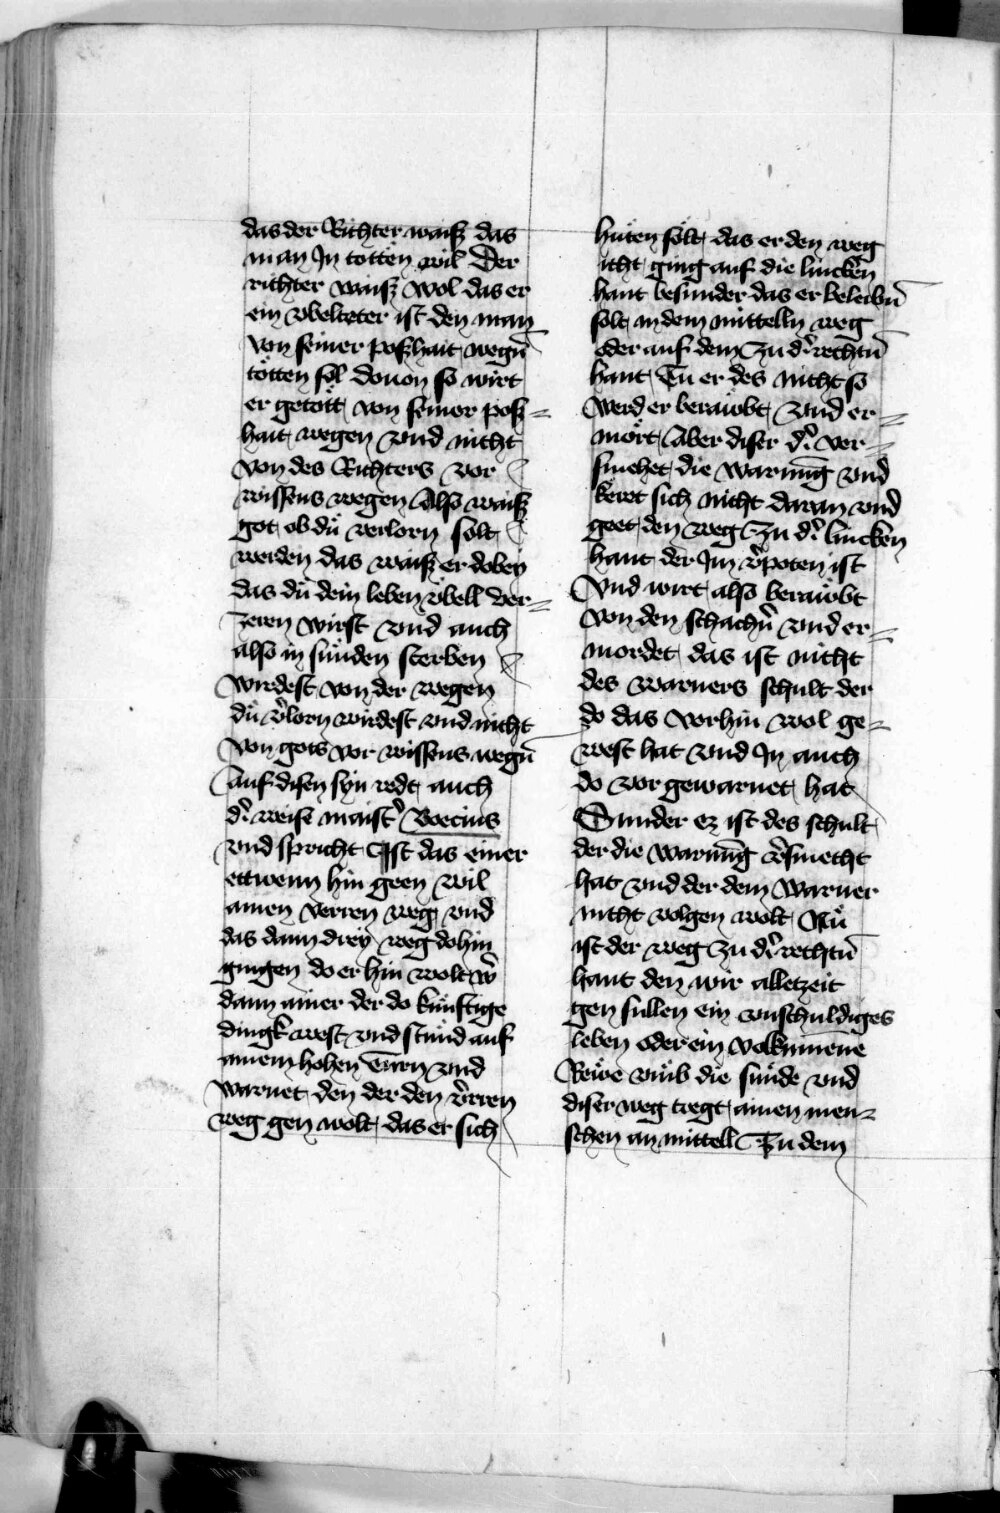 das der Richter waiß das
man Jn totten wil Der
richter waiß wol das er
ein vbelteter ist den man
von seiner poßhait wegñ
tötten sol douon so wirt
er getött von seiner poß=
hait wegen vnd nicht
von des Richters vor
wissens wegen Also waiß
got ob dü verlorn solt
werden das waiß er dobey
das dü dein leben vbell ver=
zeren wirst vnd auch
also in sünden sterben
wirdest von der wegen
dü v̾lorn wirdest vnd nicht
von gots vor wissens wegñ
Auf disen syn redt auch
d̾ weise maist̾ Boecius
vnd spricht Jst das einer
ettwenn hin geen wil
ainen verren weg vnd
das dann drey weg dohin
gingen do er hin wolt w̾
dann ainer der do künftige
dingk west vnd stünd auf
ainem hohen Turn vnd
warnet den der den v̾rren
weg gen wolt das er sich
hüten sölt das er den weg
icht ging auf die lincken
hant besunder das er beleibñ
solt in dem mitteln weg
oder auf dem zu d̾ rechtñ
hant Tu er des nicht so
werd er beraubt vnd er=
mört Aber diser d̾ ver=
smehet die warnūg vnd
keret sich nicht daran vnd
geet den weg zu d̾ lincken
hant der Jm v̾poten ist
Vnd wirt also beraubt
von den schachñ vnd er=
mordet das ist nicht
des warners schult der
do das vorhin wol ge=
west hat vnd Jn auch
do vor gewarnet hat
Sunder ez ist des schult
der die warnūg v̾smecht
hat vnd der dem warner
nicht volgen wolt Nü
ist der weg zu d̾ rechtñ
hant den wir alletzeit
gen sullen ein vnschuldiges
leben oder ein volkumēne
Rewe vmb die sünde vnd
diser weg tregt ainen men=
schen an mittell Zu dem